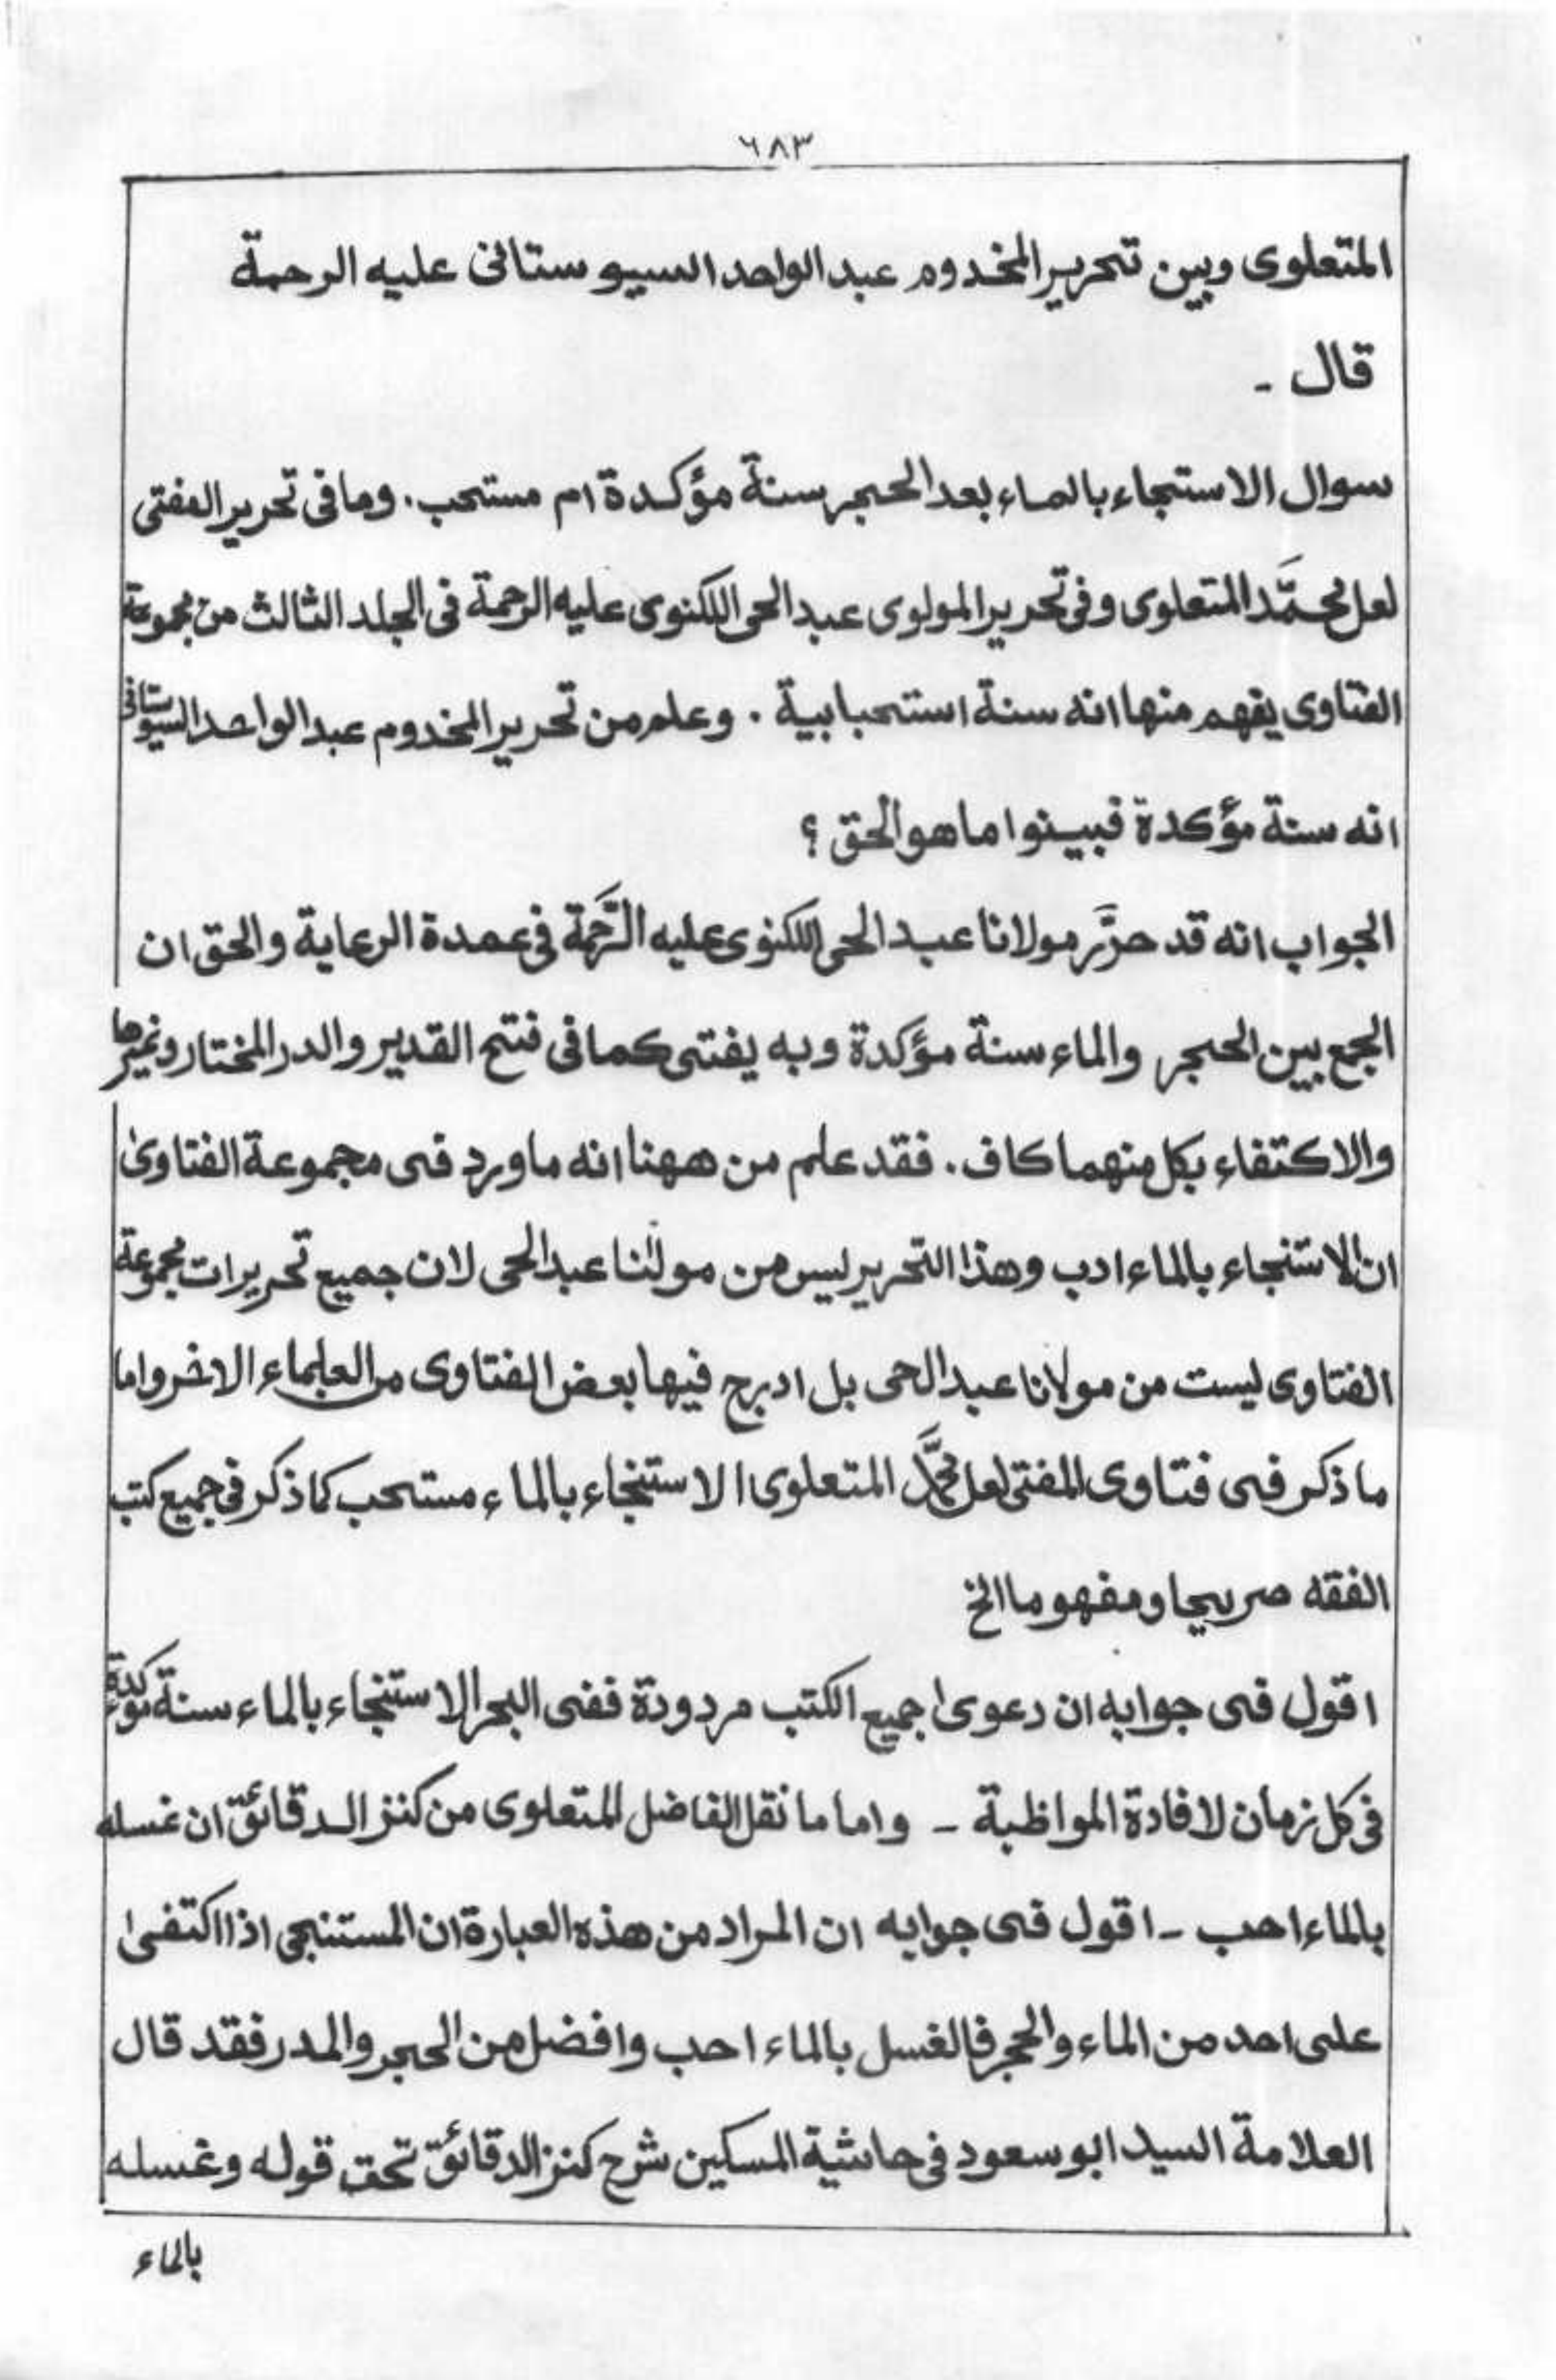 ٦٨٣
المتعلوى وبين تحرير المخدوم عبد الواحد السيوستانى عليه الرحمة
قال -
سوال الاستنجاء بالماء بعد الحجر سنة مؤكدة ام مستحب. وما فى تحرير المفتى
لعل محمَّد المتعلوى وفى تحرير المولوى عبد الحى اللكنوى عليه الرحمة فى الجلد الثالث من مجموعة
الفتاوى يفهم منها انه سنة استحبابية. وعلم من تحرير المخدوم عبد الواحد السيوستانى
انه سنة مؤكدة فبينوا ما هو الحق ؟
الجواب انه قد حرَّر مولانا عبد الحى اللكنوى عليه الرَّحمة فى عمدة الرعاية والحق ان
الجمع بين الحجر والماء سنة مؤكدة وبه يفتى كما فى فتح القدير والدر المختار وغيرها
والاكتفاء بكل منهما كاف. فقد علم من ههنا انه ما ورد فى مجموعة الفتاوىٰ
ان الاستنجاء بالماء ادب وهذا التحرير ليس من مولٰنا عبد الحى لان جميع تحريرات مجموعة
الفتاوى ليست من مولانا عبد الحى بل ادرج فيها بعض الفتاوى من العلماء الاخر واما
ما ذكر فى فتاوى المفتى لعل محمَّد المتعلوى الاستنجاء بالماء مستحب كما ذكر فى جميع كتب
الفقه صريحا ومفهوما الخ
اقول فى جوابه ان دعوىٰ جميع الكتب مردودة ففى البحر الاستنجاء بالماء سنة مؤكدة
فى كل زمان لافادة المواظبة - واما ما نقل الفاضل المتعلوى من كنز الدقائق ان غسله
بالماء احب - اقول فى جوابه ان المراد من هذه العبارة ان المستنجى اذا اكتفىٰ
على احد من الماء والحجر فالغسل بالماء احب وافضل من الحجر والمدر فقد قال
العلامة السيد ابو سعود فى حاشية المسكين شرح كنز الدقائق تحت قوله وغسله
بالماء